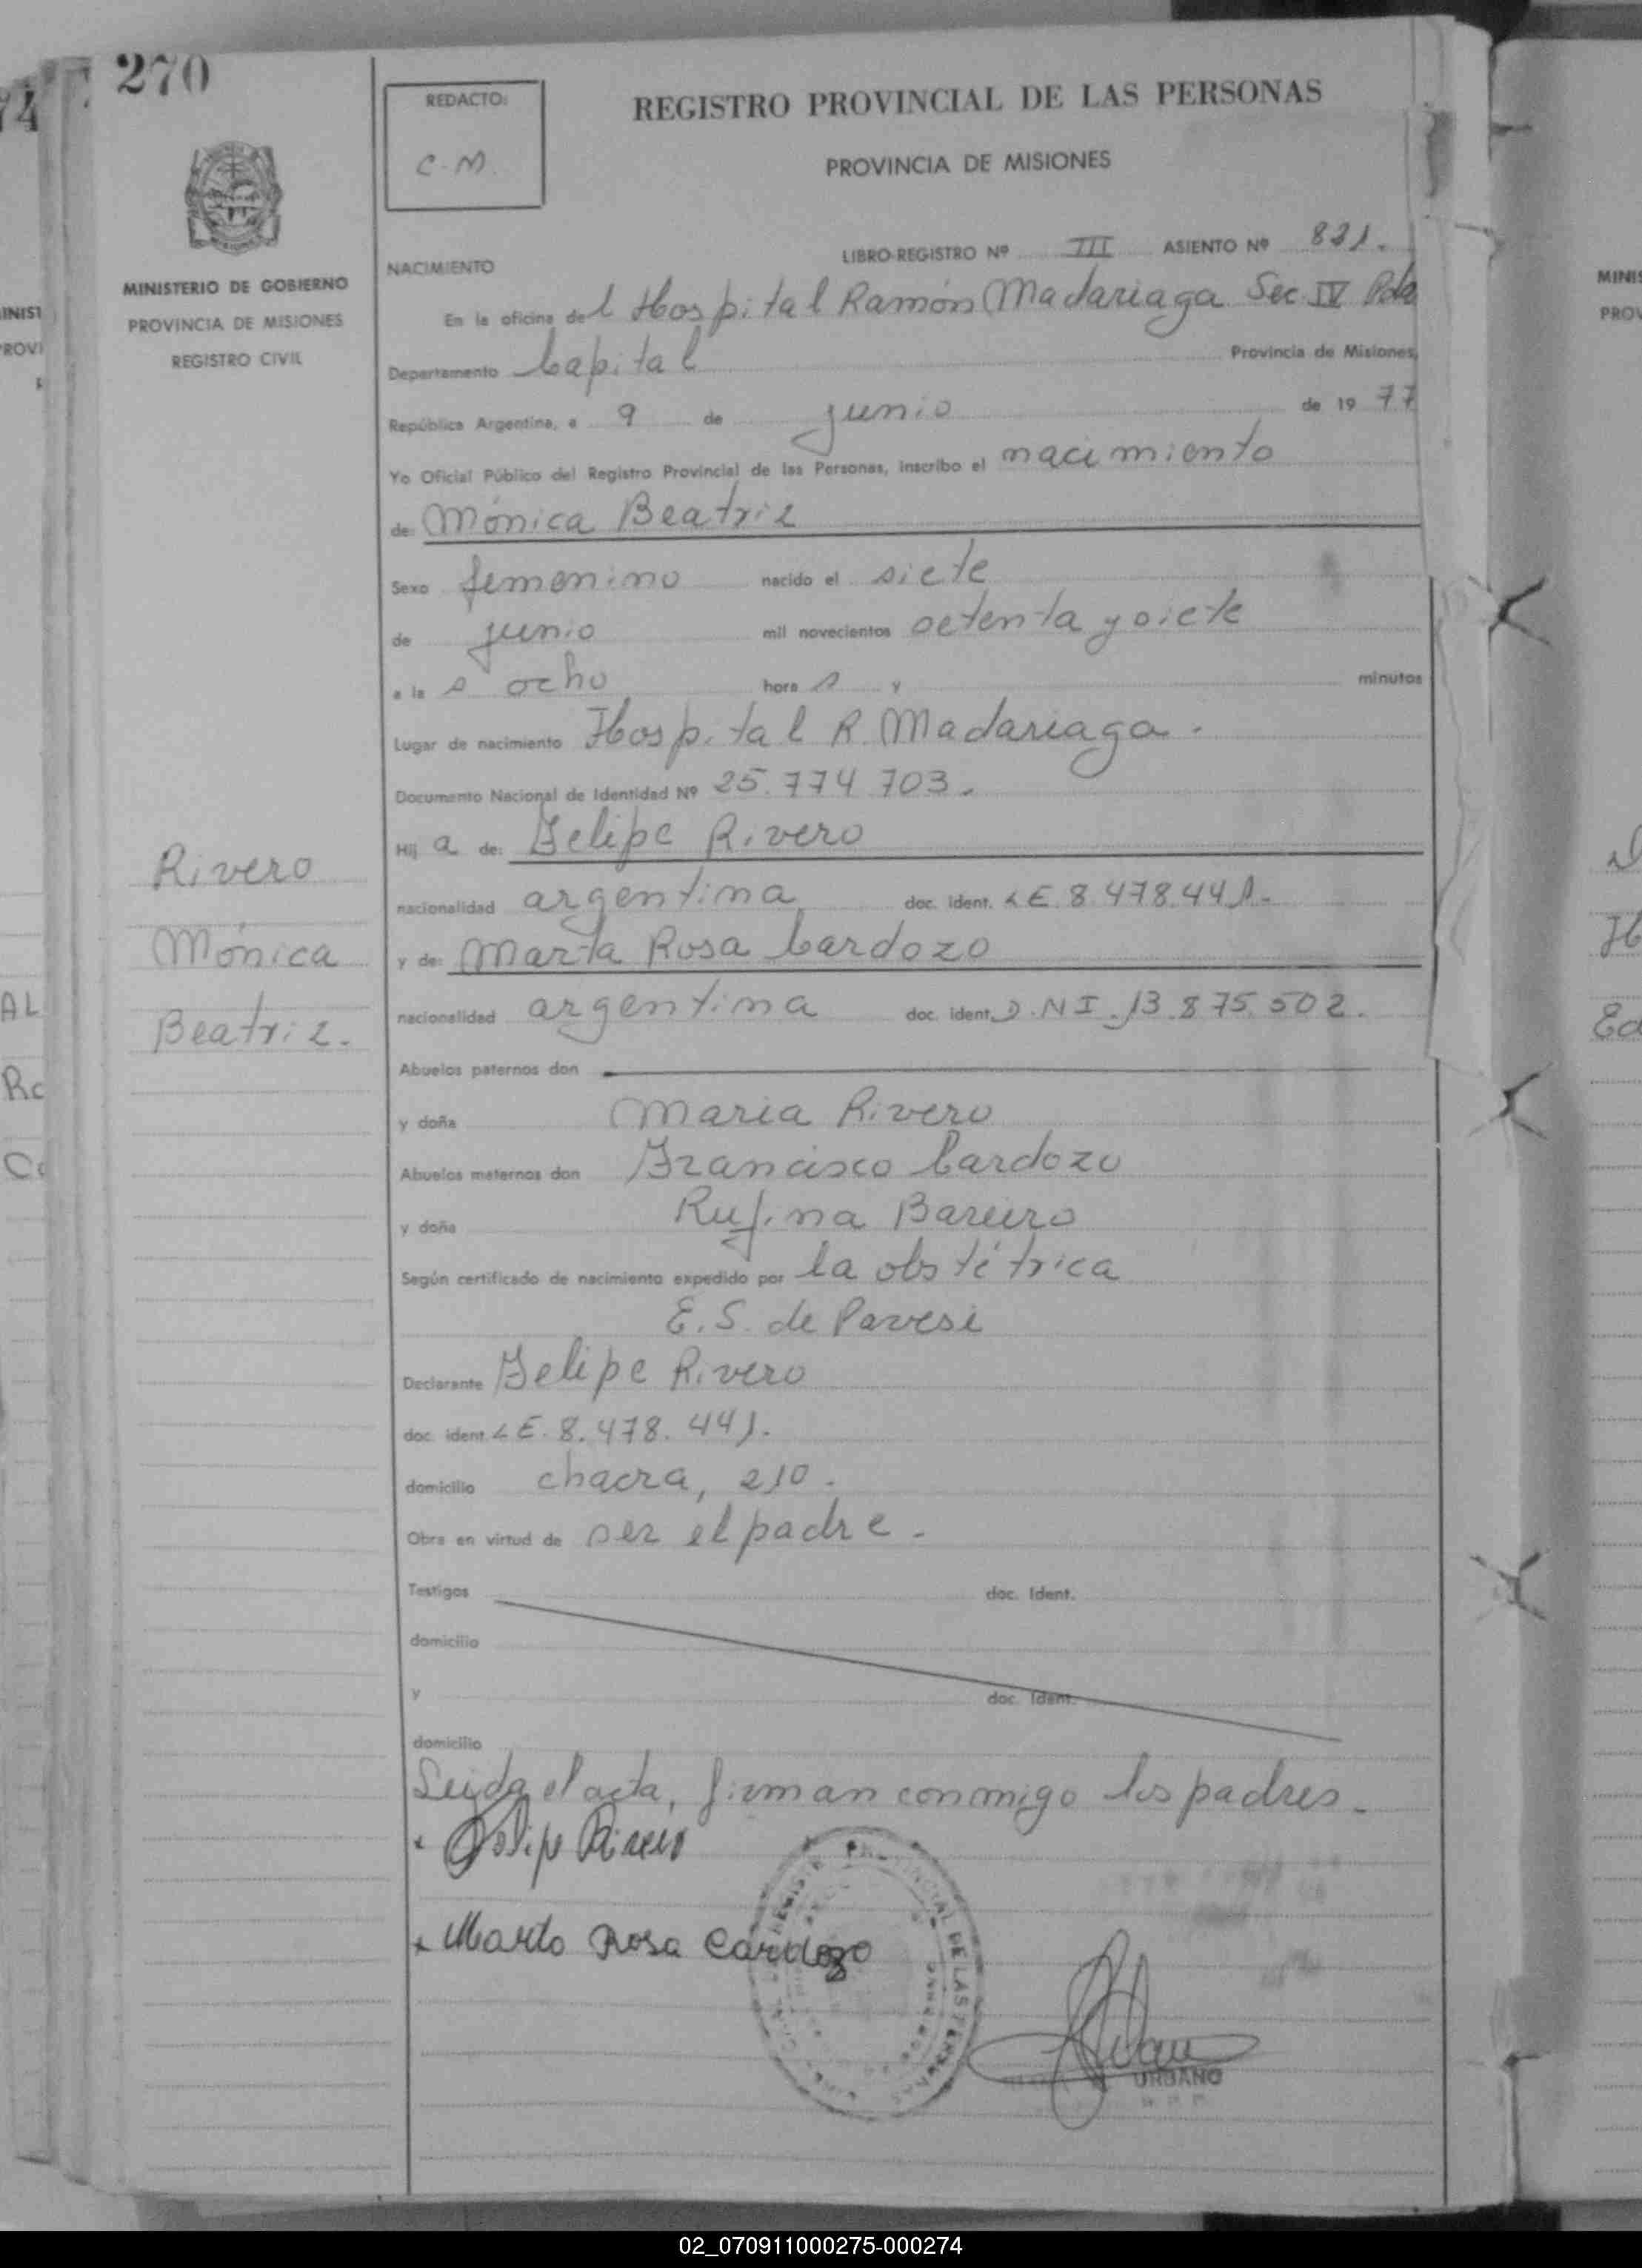 270
REDACTO:
C.M.
REGISTRO PROVINCIAL DE LAS PERSONAS
PROVINCIA DE MISIONES
MINISTERIO DE GOBIERNO
PROVINCIA DE MISIONES
REGISTRO CIVIL
LIBRO-REGISTRO Nº III ASIENTO Nº 821.
NACIMIENTO
En la oficina del Hospital Ramón Madariaga Sec IV Pdas
Departamento Capital Provincia de Misiones,
República Argentina, a 9 de junio de 1977
Yo Oficial Público del Registro Provincial de las Personas, inscribo el nacimiento
de: Mónica Beatriz
Sexo femenino nacido el siete
de junio mil novecientos setenta y siete
a la s ocho hora s y minutos
Lugar de nacimiento Hospital R. Madariaga.
Documento Nacional de Identidad Nº 25.774.703.
Hij a de: Felipe Rivero
nacionalidad argentina doc. ident. LE 8.478.441.
y de: Marta Rosa Cardozo
nacionalidad argentina doc. ident. D.N.I. 13.875.502.
Rivero
Mónica
Beatriz.
Abuelos paternos don
y doña María Rivero
Abuelos maternos don Francisco Cardozo
y doña Rufina Bareiro
Según certificado de nacimiento expedido por la obstétrica
E. S. de Pavesi
Declarante Felipe Rivero
doc. ident. LE. 8.478.441.
domicilio chacra, 210.
Obra en virtud de ser el padre.
Testigos doc. Ident.
domicilio
y doc. Ident.
domicilio
Leida el acta, firman conmigo los padres.
Felipe Rivero
Marta Rosa Cardozo
REGISTRO PROVINCIAL DE LAS PERSONAS
URBANO
02_070911000275-000274